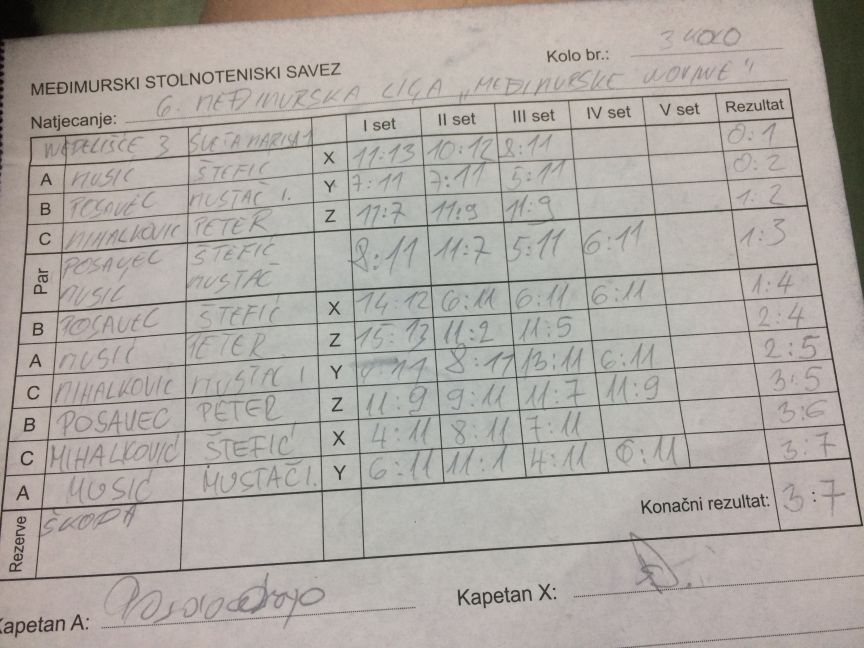 Kolo br.: 3 KOLO
MEĐIMURSKI STOLNOTENISKI SAVEZ
Natjecanje: 6. MEĐIMURSKA LIGA „MEĐIMURSKE NOVINE"
I set II set III set IV set V set Rezultat
NEDELIŠĆE 3 SVETA MARIJA 1
A MUSIĆ ŠTEFIĆ X 11:13 10:12 8:11 0:1
B POSAVEC MUSTAČ I. Y 7:11 7:11 5:11 0:2
C MIHALKOVIĆ PETER Z 11:7 11:9 11:9 1:2
Par POSAVEC ŠTEFIĆ 8:11 11:7 5:11 6:11 1:3
MUSIĆ MUSTAČ
B POSAVEC ŠTEFIĆ X 14:12 6:11 6:11 6:11 1:4
A MUSIĆ PETER Z 15:13 11:2 11:5 2:4
C MIHALKOVIĆ MUSTAČ I Y 8:11 13:11 6:11 2:5
B POSAVEC PETER Z 11:9 9:11 11:7 11:9 3:5
C MIHALKOVIĆ ŠTEFIĆ X 4:11 8:11 7:11 3:6
A MUSIĆ MUSTAČ I. Y 6:11 11:1 4:11 6:11 3:7
Rezerve ŠKODA Konačni rezultat: 3:7
Kapetan A: Kapetan X: